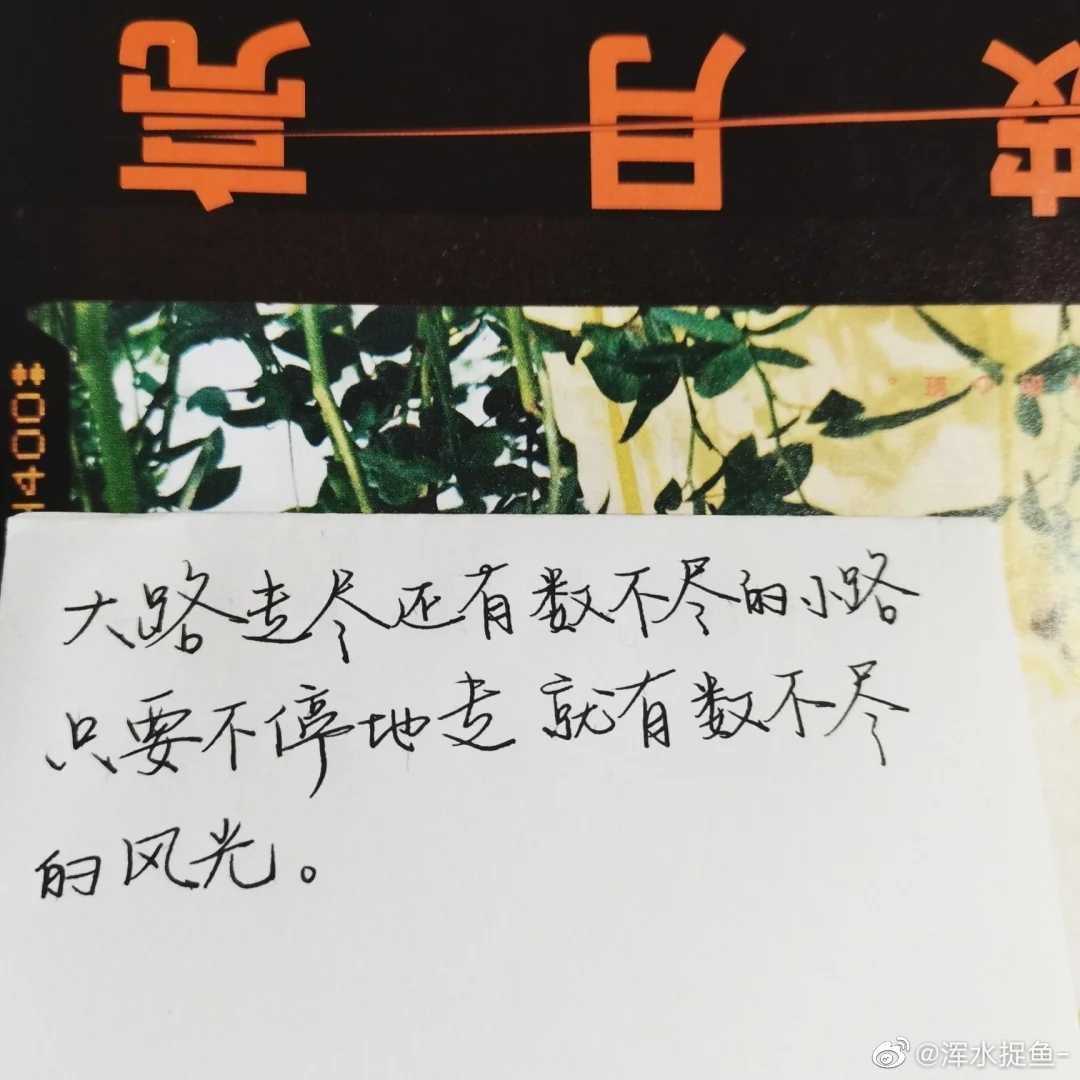 月亮
大路走尽还有数不尽的小路
只要不停地走 就有数不尽
的风光。
@浑水捉鱼-